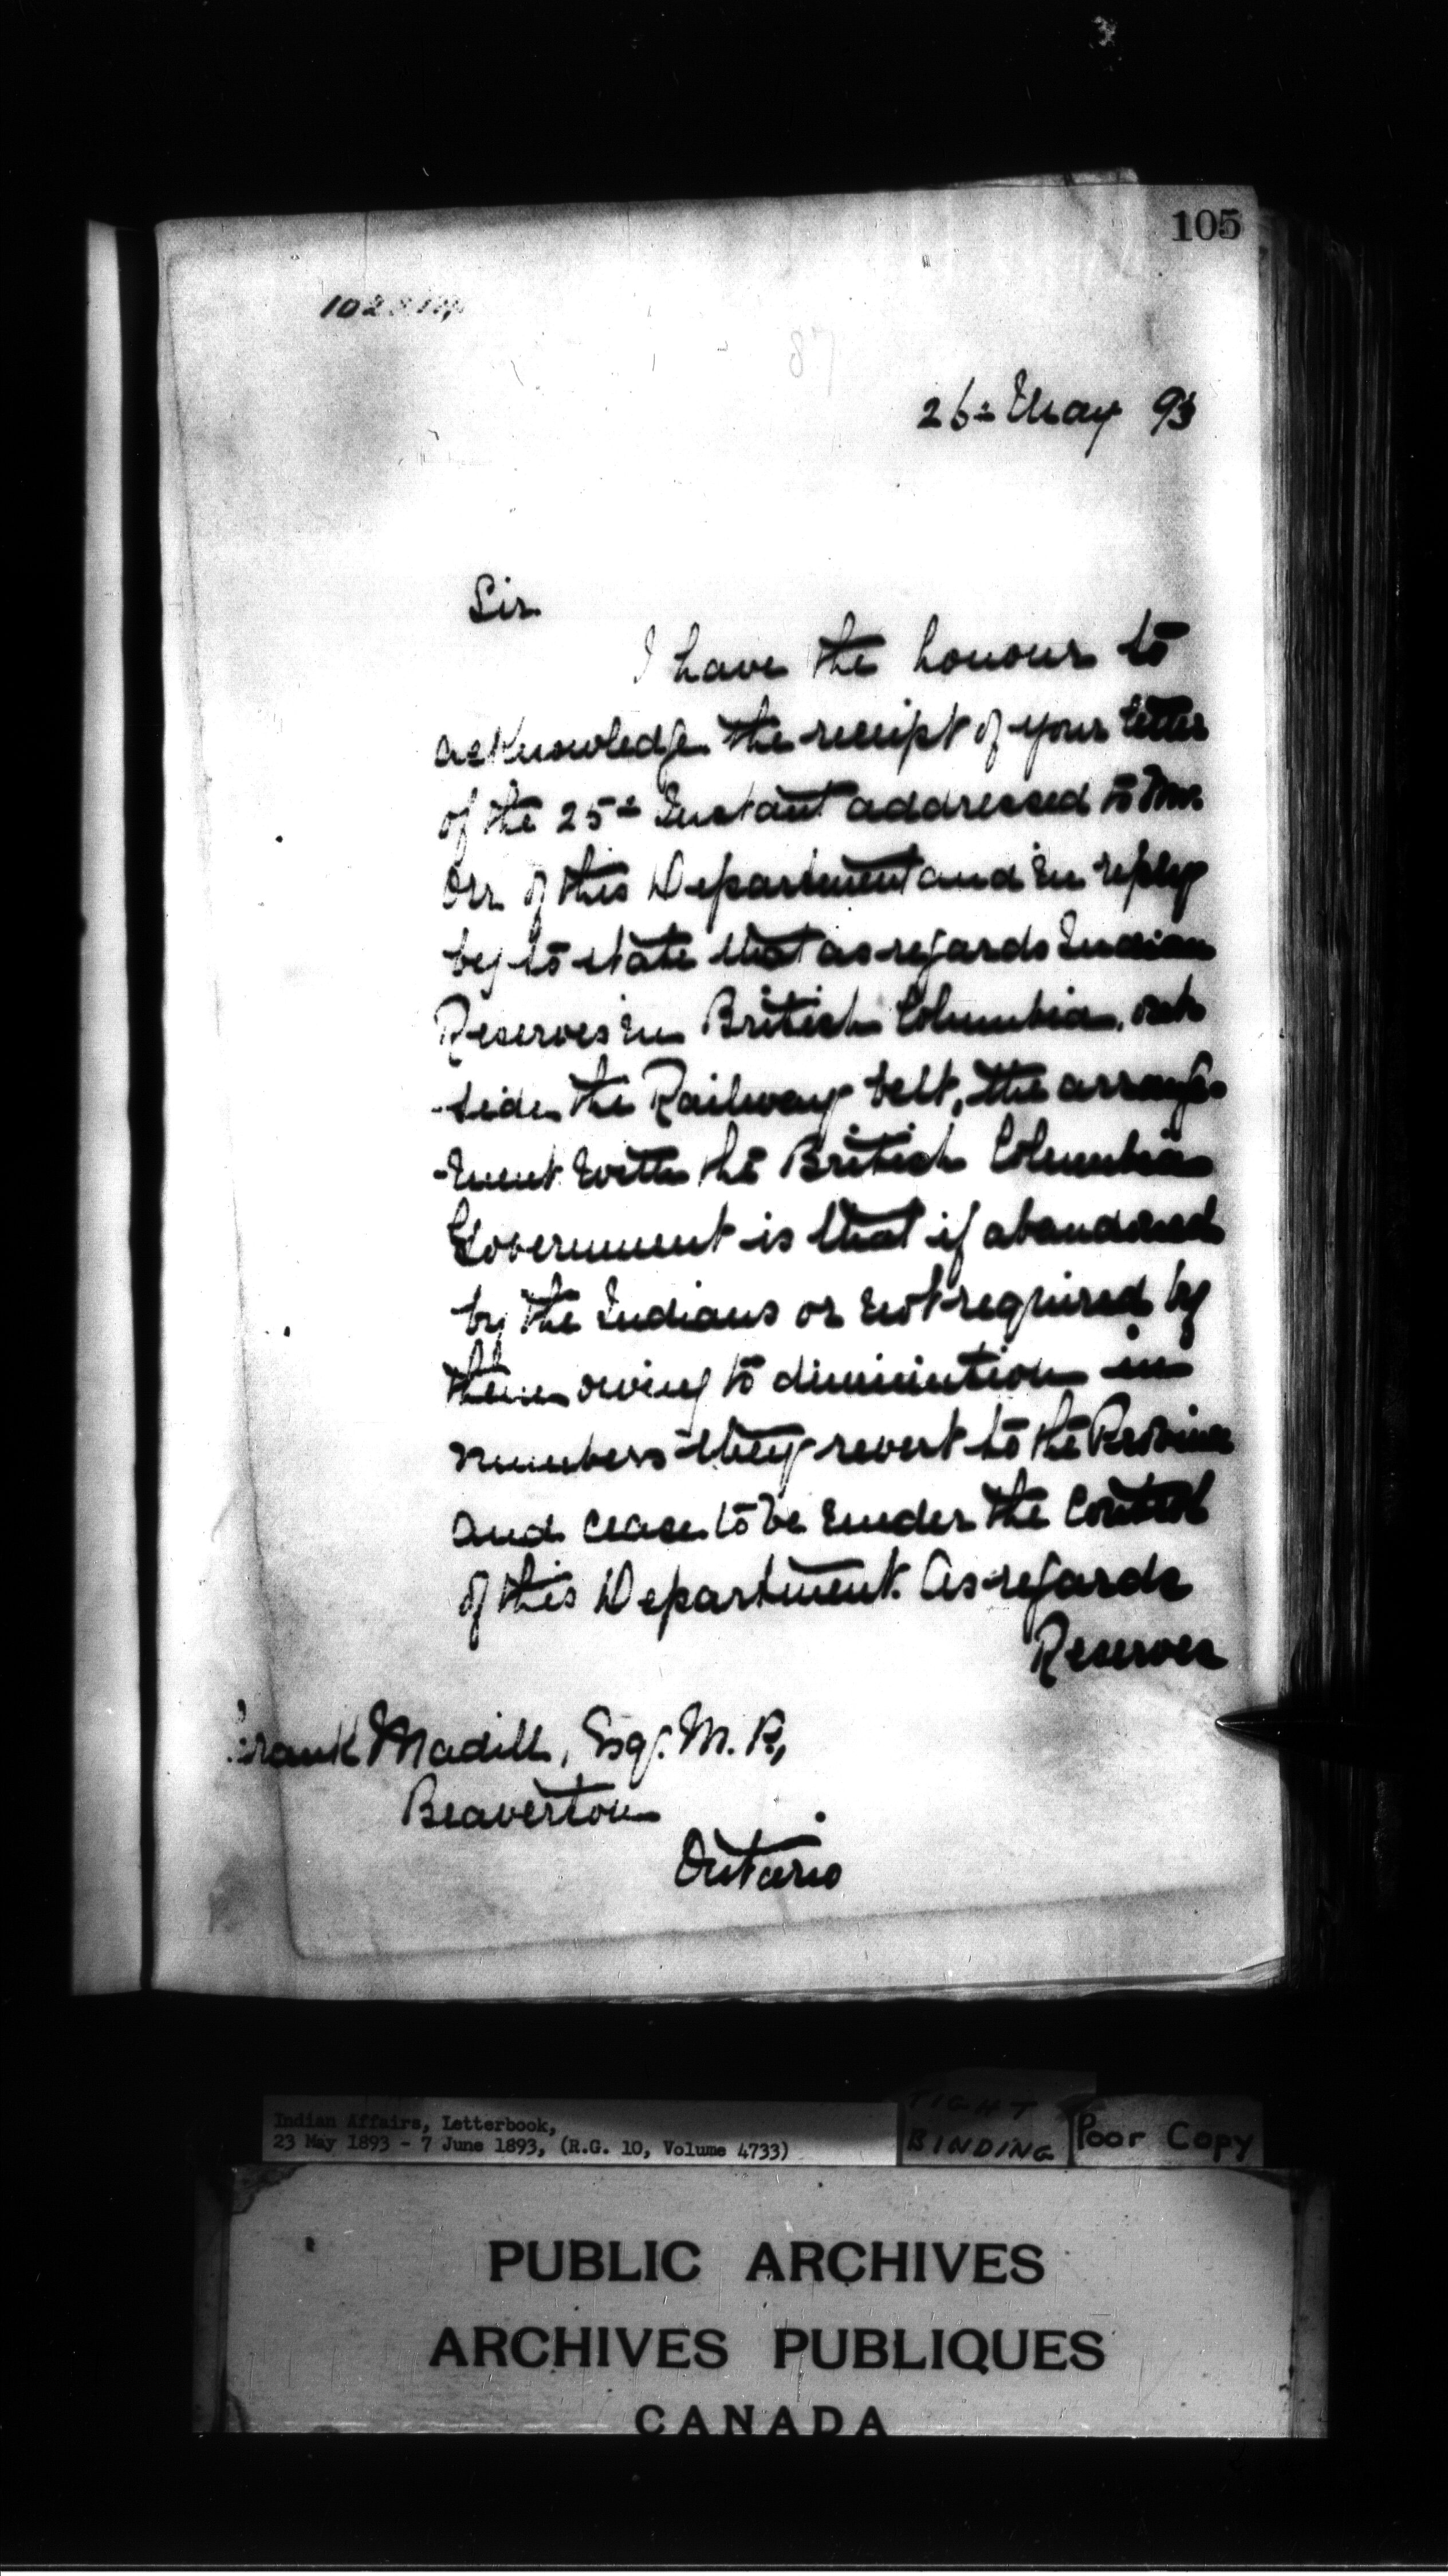 105
26th May 93
Sir
I have the honour to
acknowledge the receipt of your letter
of the 25th Instant addressed to Mr.
Orr of this Department and in reply
beg to state that as regards Indian
Reserves in British Columbia, out
-side the Railway belt, the arrange-
-ment with the British Columbia
Government is that if abandoned
by the Indians or not required by
them owing to diminution in
numbers they revert to the Province
and cease to be under the control
of this Department. As regards
Reserves
Frank Madill, Esq. M.P.,
Beaverton
Ontario
Indian Affairs, Letterbook,
23 May 1893 - 7 June 1893, (R.G. 10, Volume 4733)
TIGHT
BINDING
Poor Copy
PUBLIC ARCHIVES
ARCHIVES PUBLIQUES
CANADA